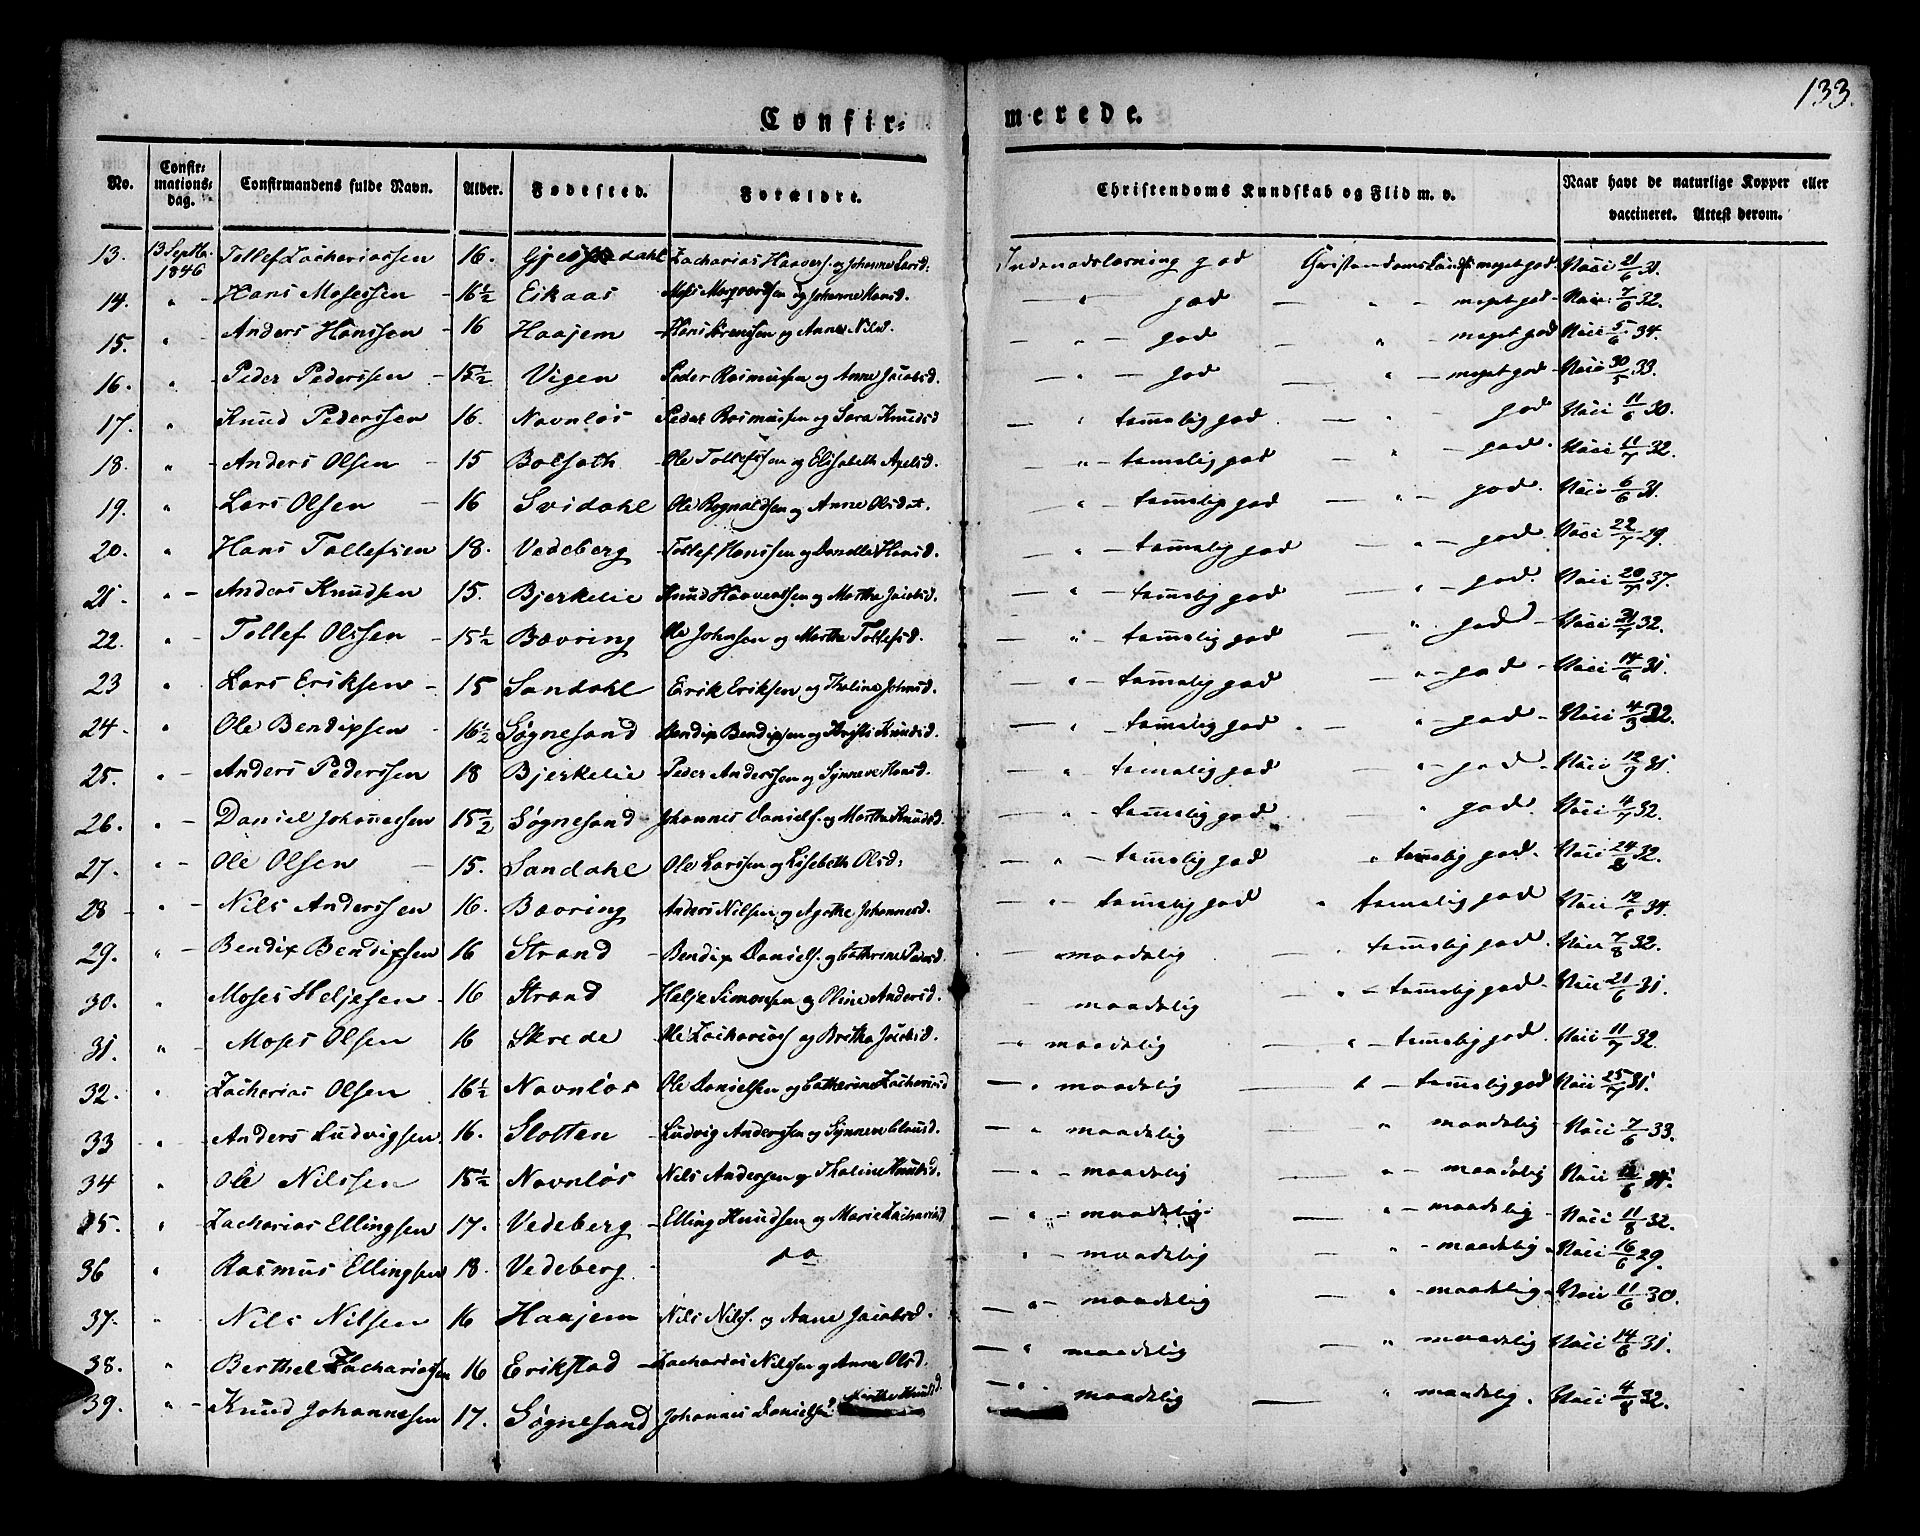 133.
Confir- merede.
No. Confirmations-dag. Confirmandens fulde Navn. Alder. Fødested. Forældre. Christendoms Kundskab og Flid m. v. Naar havt de naturlige Kopper eller vaccineret. Attest derom.
13. 13 Septbr. 1846 Tollef Zachariassen 16. dahl Zacharias Haavers. og Johanne Larsd: Indenadslæsning god Christendomskundsk meget god. Vacc 21/6 31.
14. " Hans Mosessen - 16½ Eikaas Moses Margvardsen og Johanne Hansd. — " god — " — meget god - Vacc. 7/6 32.
15. " Anders Hanssen - 16 Haajem - Hans Sørenssen og Anne Nilsd. — " — god " — meget god Vacc 5/6 34.
16. " Peder Pederssen - 15½ Vigen Peder Rasmussen og Anne Jacobsd. — " — god — " — meget god - Vacc 30/5 33.
17. " Knud Pederssen 16. Navnløs Peder Rasmussen og Sara Knudsd — " tammelig god — " — god Vacc 11/6 30.
18. " - Anders Olsen - 15 Bolsæth - Ole Tollefssen og Elisabeth Axelsd. " — tammelig god " — god. Vacc 11/7 32.
19. " Lars Olsen - 16 Svidahl Ole Rognaldsen og Anne Olsdat. " — tammelig god — " — god. Vacc 6/6 31.
20. " Hans Tollefsen 18. Vedeberg Tollef Hanssen og Danelle Hansd. — " — tammelig god " — god. Vacc 22/7 29.
21. " - Anders Knudsen 15. Bjerkelie Knud Haavertsen og Marthe Jacobsd. — " — tammelig god — " — god. Vacc 20/7 37.
22. " - Tollef Olssen - 15½ Bævring Ole Johnsen og Marthe Tollefsd. — " — tammelig god — " god Vacc 21/7 32.
23 " Lars Eriksen - 15 Sandahl Erik Eriksen og Thaline Johnsd. — " — tammelig god " — god - Vacc 14/6 31.
24. " Ole Bendixsen - 16½ Søgnesand Bendix Bendixsen og Kristi Knudsd. — " tammelig god " — god - Vacc 4/9 32.
25. " - Anders Pederssen 18 Bjerkelie - Peder Anderssen og Synneve Hansd. — " — tammelig god — " — god - Vacc 12/9 31.
26. " - Daniel Johannessen 15½ Søgnesand Johannes Daniels. og Marthe Knudsd. — " — tammelig god " god - Vacc 4/7 32.
27. " - Ole Olsen - 15. Sandahl Ole Larssen og Lisebeth Olsd: — " — tammelig god " tammelig god. Vacc 24/8 32.
28 " - Nils Anderssen 16. Bævring Anders Nilsen og Agathe Johannesd. — " — tammelig god " tammelig god Vacc 12/6 34.
29. " - Bendix Bendixsen 16 Strand - Bendix Daniels. og Cathrine Pedersd — " maadelig " tammelig god. Vacc 7/8 32.
30. " Moses Heljesen - 16 Strand Helje Simonsen og Oline Andersd. — " maadelig — " — tammelig god - Vacc 21/6 31.
31. " - Moses Olsen 16 Skrede Ole Zacharias og Britha Jacobsd. — " maadelig — " — tammelig god. Vacc 11/7 32.
32. " Zacharias Olsen 16½ Navnløs Ole Danielsen og Catherine Zachariasd — " maadelig — " — tammelig god Vacc 25/7 31.
33 " - Anders Ludvigsen 16. Slotten - Ludvig Anderssen og Synneve Clausd. — " — maadelig " maadelig - Vacc 7/6 33.
34 " Ole Nilssen 15½ Navnløs Nils Andersen og Thaline Knudsd. — " — maadelig " — maadelig Vacc 12/6 31.
35. " Zacharias Ellingsen 17. Vedeberg - Elling Knudsen og Marie Zachariasd — " — maadelig. — " — maadelig Vacc 11/8 32.
36 " Rasmus Ellingsen 18. Vedeberg - do " — maadelig — " — maadelig - Vacc 16/6 29.
37. " Nils Nilsen 16 Haajem Nils Nils. og Anne Jacobsd. — " — maadelig — " — maadelig Vacc 11/6 30.
38. " Berthel Zachariassen 16 Erikstad Zacharias Nilssen og Anne Olsd. — " maadelig " maadelig Vacc 14/6 31.
39. " - Knud Johannesen 17. Søgnesand Johannes Danielsen? Marthe Knudsd. — " maadelig — " maadelig. Vacc 4/8 32.